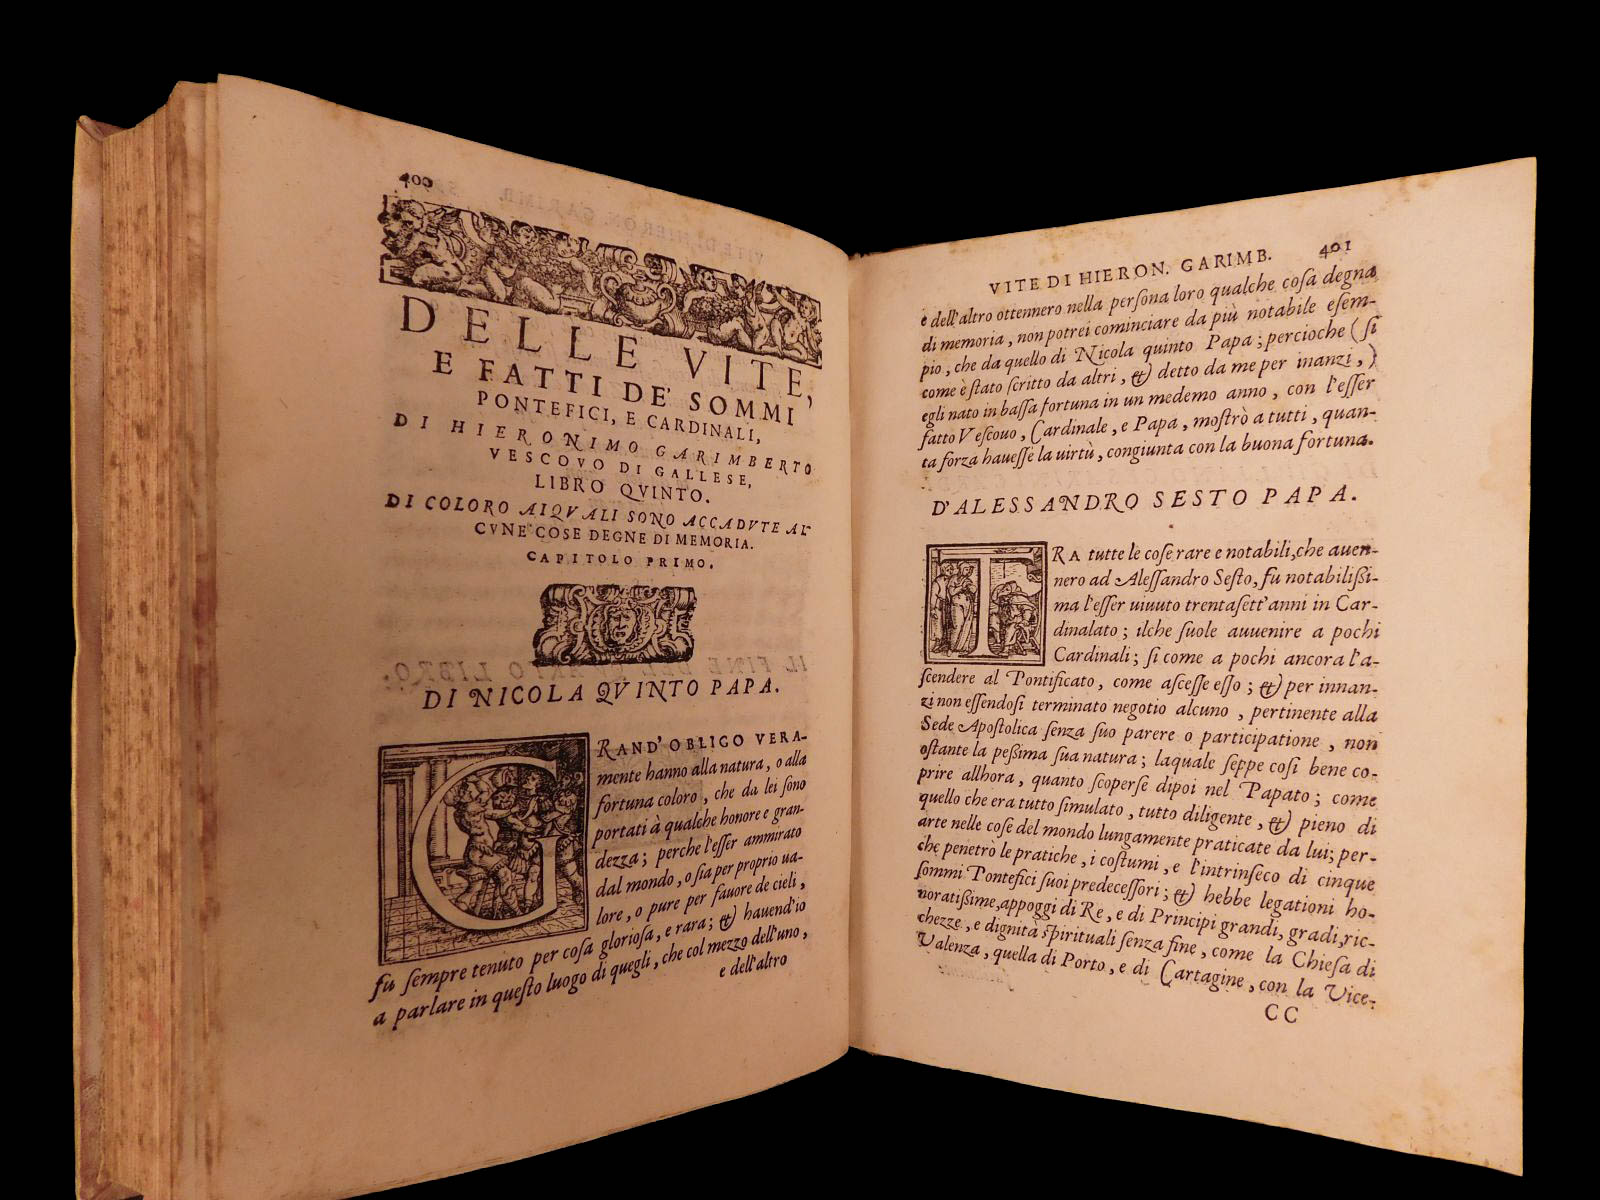 400
DELLE VITE,
E FATTI DE' SOMMI
PONTEFICI, E CARDINALI,
DI HIERONIMO GARIMBERTO
VESCOVO DI GALLESE,
LIBRO QVINTO.
DI COLORO AIQVALI SONO ACCADVTE AL
CVNE COSE DEGNE DI MEMORIA.
CAPITOLO PRIMO.
DI NICOLA QVINTO PAPA.
GRAND'OBLIGO VERA-
mente hanno alla natura, o alla
fortuna coloro, che da lei ſono
portati à qualche honore e gran-
dezza; perche l'eſſer ammirato
dal mondo, o ſia per proprio ua-
lore, o pure per fauore de cieli,
fu ſempre tenuto per coſa glorioſa, e rara; & hauend'io
a parlare in queſto luogo di quegli, che col mezzo dell'uno,
e dell'altro
VITE DI HIERON. GARIMB. 401
e dell'altro ottennero nella perſona loro qualche coſa degna
di memoria, non potrei cominciare da più notabile eſem-
pio, che da quello di Nicola quinto Papa; percioche (ſi
come è ſtato ſcritto da altri, & detto da me per inanzi,)
egli nato in baſſa fortuna in un medemo anno, con l'eſſer
fatto Veſcouo, Cardinale, e Papa, moſtrò a tutti, quan-
ta forza haueſſe la uirtù, congiunta con la buona fortuna.
D'ALESSANDRO SESTO PAPA.
TRA tutte le coſe rare e notabili, che auen-
nero ad Aleſſandro Seſto, fu notabilißi-
ma l'eſſer uiuuto trentaſett'anni in Car-
dinalato; ilche ſuole auuenire a pochi
Cardinali; ſi come a pochi ancora l'a-
ſcendere al Pontificato, come aſceſſe eſſo; & per innan-
zi non eſſendoſi terminato negotio alcuno, pertinente alla
Sede Apoſtolica ſenza ſuo parere o participatione, non
oſtante la peßima ſua natura; laquale ſeppe coſi bene co-
prire allhora, quanto ſcoperſe dipoi nel Papato; come
quello che era tutto ſimulato, tutto diligente, & pieno di
arte nelle coſe del mondo lungamente praticate da lui; per-
che penetrò le pratiche, i coſtumi, e l'intrinſeco di cinque
ſommi Pontefici ſuoi predeceſſori; & hebbe legationi ho-
noratißime, appoggi di Re, e di Principi grandi, gradi, ric-
chezze, e dignità ſpirituali ſenza fine, come la Chieſa di
Valenza, quella di Porto, e di Cartagine, con la Vice-
CC